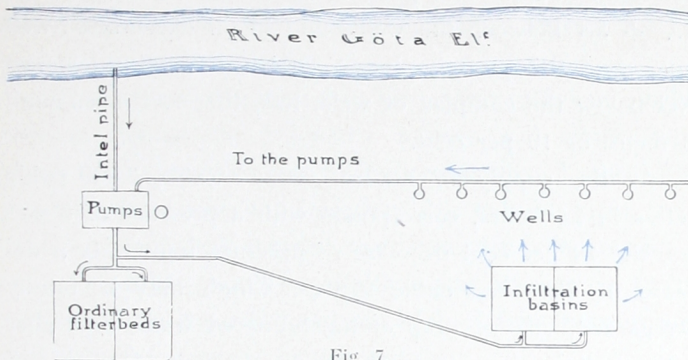 River Göta Elf
Intel pipe
To the pumps
Pumps
Wells
Ordinary
filterbeds
Infiltration
basins
Fig. 7